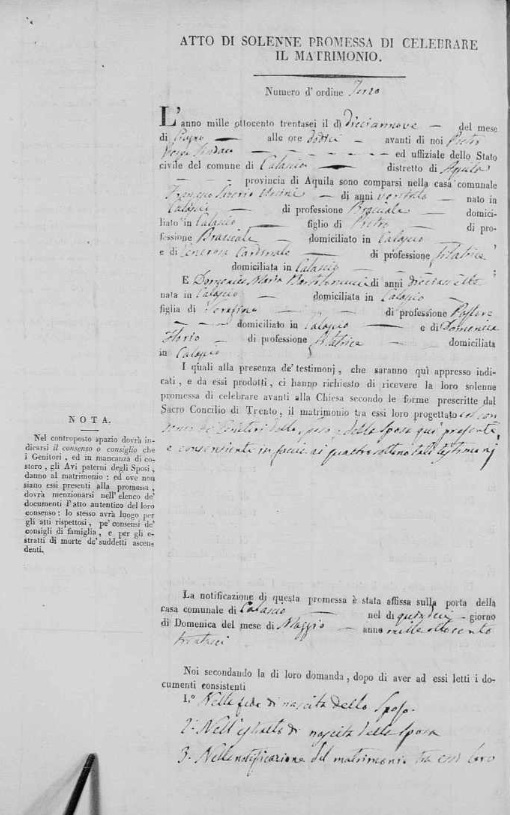 ATTO DI SOLENNE PROMESSA DI CELEBRARE
IL MATRIMONIO.
Numero d' ordine Terzo
L'anno mille ottocento trentasei il dì diciannove — del mese
di Giugno — alle ore dodici — avanti di noi Pietro
ed uffiziale dello Stato
civile del comune di Calascio — distretto di Aquila
— provincia di Aquila sono comparsi nella casa comunale
di anni ventotto — nato in
Calascio — di professione Bracciale — domici-
liato in Calascio — figlio di Pietro — di pro-
fessione Bracciale — domiciliato in Calascio
e di Cardinale — di professione filatrice
domiciliata in Calascio —
E Domenica Maria di anni diciasette
nata in Calascio — domiciliata in Calascio —
figlia di Serafino — di professione Pastore
— domiciliato in Calascio — e di Domenica
— di professione filatrice — domiciliata
in Calascio
I quali alla presenza de' testimonj, che saranno quì appresso indi-
cati, e da essi prodotti, ci hanno richiesto di ricevere la loro solenne
promessa di celebrare avanti alla Chiesa secondo le forme prescritte dal
Sacro Concilio di Trento, il matrimonio tra essi loro progettato col con
della Sposa quì presente,
e consenziente in faccia ai quattro sottonotati testimonj
NOTA.
Nel controposto spazio dovrà in-
dicarsi il consenso e consiglio che
i Genitori, ed in mancanza di co-
storo, gli Avi paterni degli Sposi,
danno al matrimonio: ed ove non
siano essi presenti alla promessa,
dovrà menzionarsi nell'elenco de'
documenti l'atto autentico del loro
consenso: lo stesso avrà luogo per
gli atti rispettosi, pe' consensi de'
consigli di famiglia, e per gli e-
stratti di morte de' suddetti ascen
denti.
La notificazione di questa promessa è stata affissa sulla porta della
casa comunale di Calascio — nel dì quindici — giorno
di Domenica del mese di Maggio — anno mille ottocento
trentasei
Noi secondando la di loro domanda, dopo di aver ad essi letti i do-
cumenti consistenti
1.º Nella fede di nascita dello Sposo.
2.º Nell'estratto di nascita della Sposa
3.º Nella notificazione del matrimonio tra essi loro